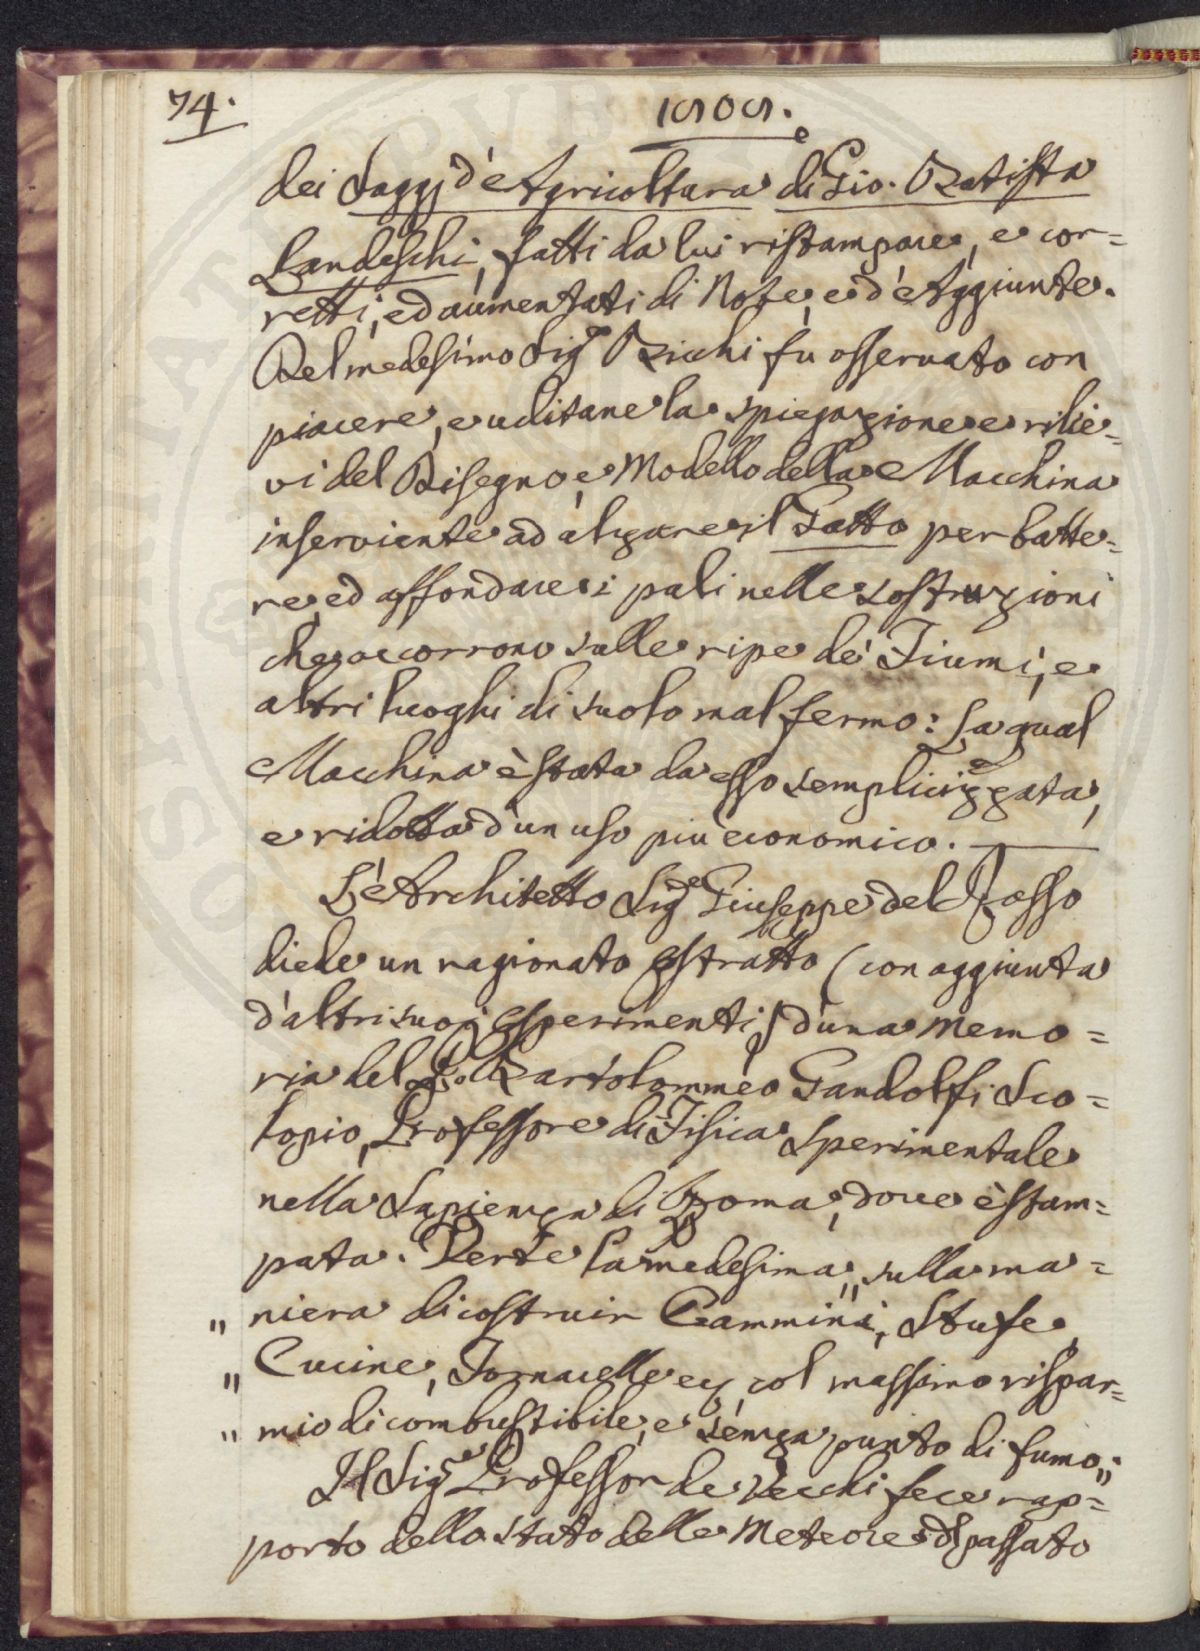 74.
1808.
dei Saggj d'Agricoltura di Gio. Batista
Landeschi, fatti da lui ristampare, e cor=
retti, ed aumentati di Note, e d'Aggiunte.
Del medesimo Sig.e Ricchi fu osservato con
piacere, e uditane la spiegazione e rilie=
vi del Disegno, e Modello della Macchina
inserviente ad alzare il Gatto per batte=
re, ed affondare i pali nelle sostruzioni
che occorrono sulle ripe de' Fiumi, e
altri luoghi di suolo mal fermo: La qual
Macchina è stata da esso semplicizzata,
e ridotta d'un uso più economico.
L'Architetto Sig.e Giuseppe del Rosso
diede un ragionato estratto (con aggiunta
d'altri suoj esperimenti) d'una Memo=
ria del P. Bartolommeo Gandolfi Sco=
lopio, Professore di Fisica Sperimentale
nella Sapienza di Roma, dove è stam=
pata. Verte la medesima „ sulla ma=
„ niera di costruir Cammini, Stufe,
„ Cucine, Fornacelle ec. col massimo rispar=
„ mio di combustibile, e senza punto di fumo „.
Il Sig.e Professor de Vecchi fece rap=
porto dello stato delle Meteore del passato